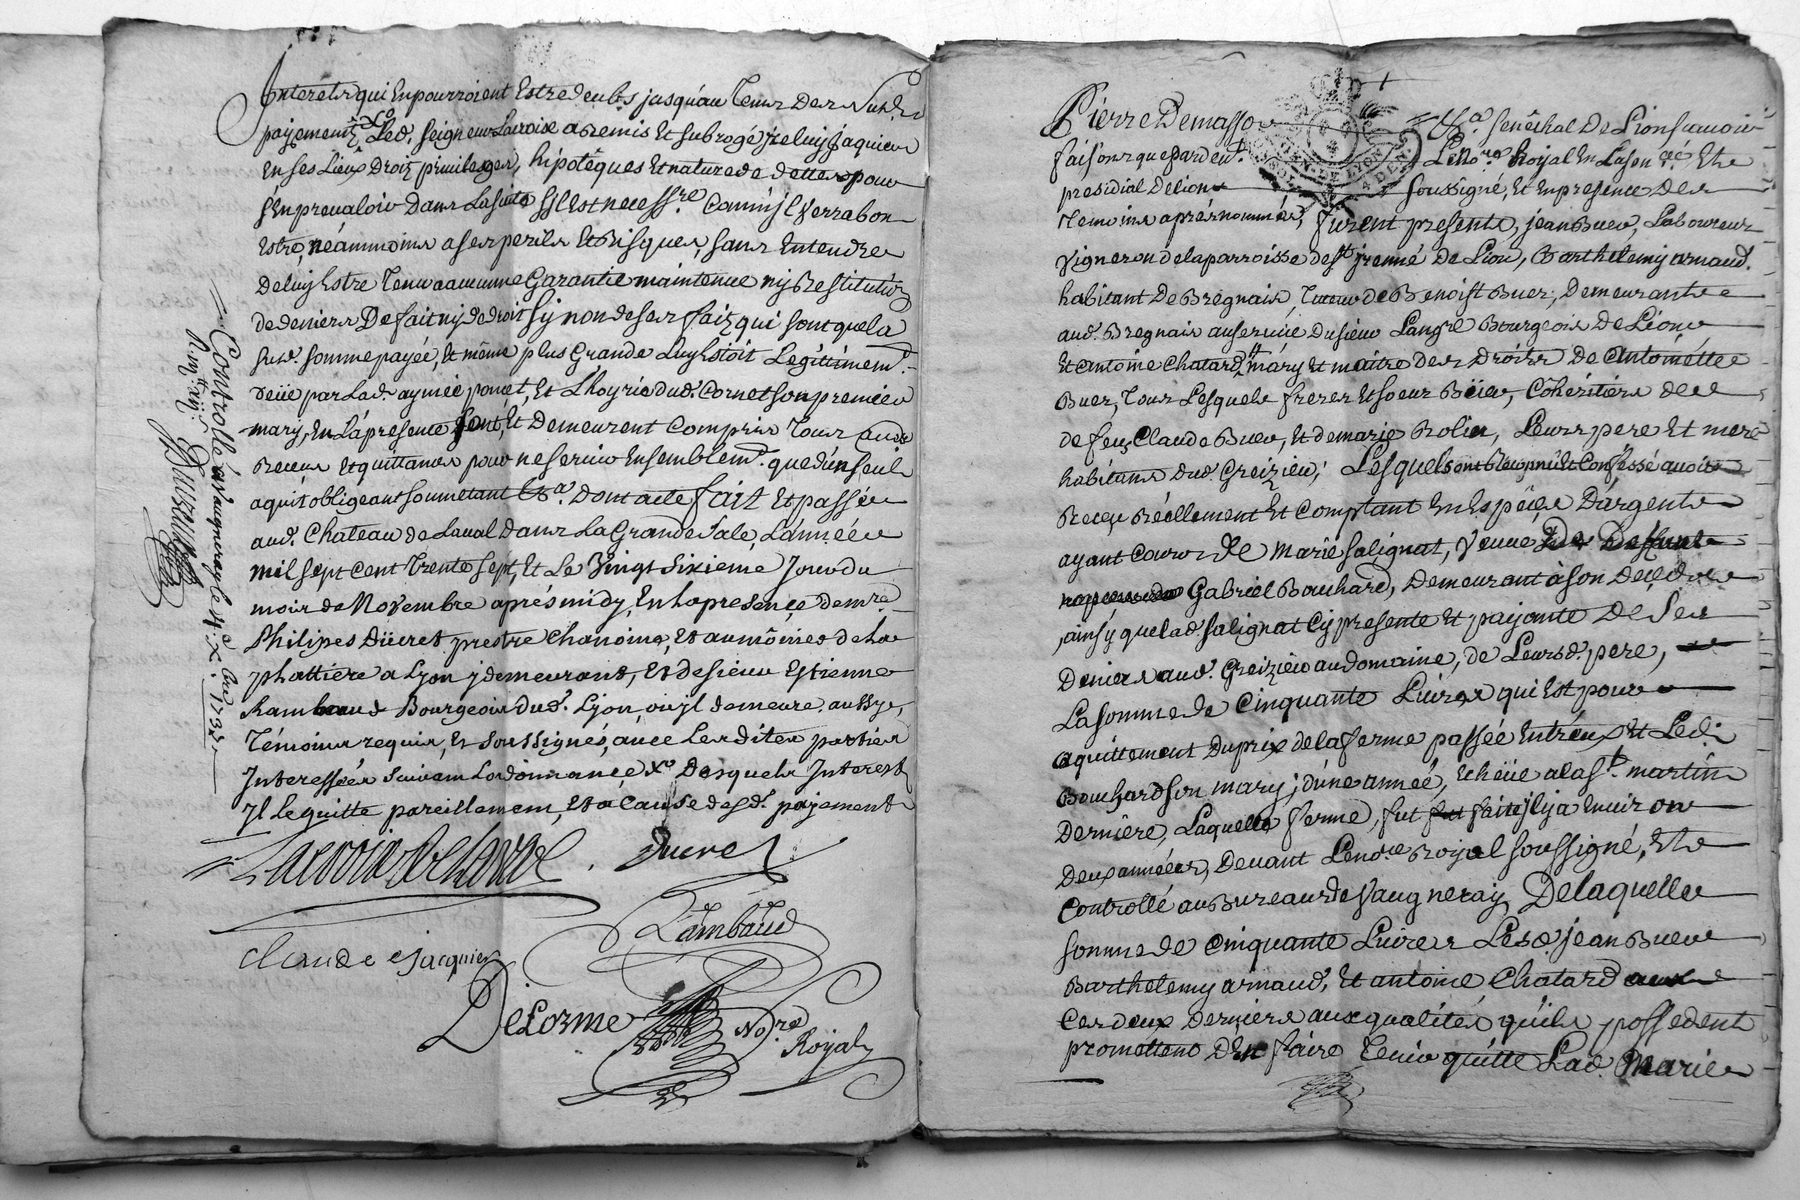 Interets qui En pourroient Estre deubs jusqu'au Tems Des Susd.
payements Led. Seigneur Lacroix a Remis Et subrogé jceluy Jaquier
En ses Lieux Droits privileges, hipotêques Et nature de dettes pour
S'En prevaloir Dans La suitte S'jl Est necess.re Comm'jl Verra bon
Estre, néammoins a ses perils Et Risques, sans Entendre
De luy Estre Tenu a aucunne Garantie maintenue ny Restitution
de deniers De fait ny de droit sy non de ses faits qui sont que la
Susd. somme payée, Et même plus Grande Luy Estoit Legittimem.t
deüe par Lad. aymée poncet, Et L'hoyrie dud. Cornet son premier
mary, En La presente sont, Et Demeurent Compris Tous
Receus Et quittances pour ne servir Ensemblem.t que d'un seul
aquit obligeant soumettant &a. Dont acte fait Et passée
aud. Chateau de Laval Dans La Grande Sale, L'année
mil sept cent Trente sept, Et Le Vingt Sixieme Jour du
mois de Novembre aprés midy, En la presençe de m.re
Philipes Düeret prestre Chanoine, Et aumônier de La
phattiere a Lyon y demeurant, Et de sieur Estienne
Rambaud Bourgeois dud. Lyon, ou jl demeure aussy,
Témoins requis, Et soussignés, avec Les dites parties
Interessées suivam Lordonnance Xo Desquels Interest
Jl Le quitte pareillemen, Et a Cause desd. payement
Lacroix de Laval . Ducret
Rambaud
claude Jacquier
DeLorme No.re
Royal
Controllé a Vaugneray le 4.e Xbre 1737
Pierre Demasso &a. Senéchal De Lion sçavoir
faisons que pardev.t Le No.re Royal En La sen.ée Et
presidial De Lion Soussigné, Et En presence Des
Temoins aprés nommés, furent presents, jean Buer, Laboureur
Vigneron de la parroisse de s.t jrenné De Lion, Barthelemy arnaud.
habitant De Bregnais, Tuteur de Benoist Buer, Demeurant
aud. Bregnais au servicé Du sieur Bourgeois De Léon
Et antoine Chatard mary Et maitre des Droits De antoinétte
Buer, Tous Lesquels freres Et soeur Büer, Cohéritiers de
de feu Claude Buer, Et de marie Rolin, Leurs pere Et mere
habitans Dud. Greizieu, Lesquels ont Confessé avoir
Reçeu Réellement Et Comptant En Espéces D'argent
ayant Cours De Marie Salignat, Veuve De Deffunt
Gabriel Bouchard, Demeurant à son Deçéds
ainsy que lad. Salignat Cy presente Et payante De Ses
Deniers aud. Greizieu au domaine, de Leursd. pere,
La somme de Cinquante Livres qui Est pour
aquittement Du prix de la ferme passée Entr'eux Et Led.
Bouchard son mary, d'une année, Echëüe a la S.t martin
Derniere, Laquelle ferme, fut faite jl y a Environ
Deux années, Devant Le no.re Royal soussigné, Et
Controllé au Bureau de Vaugneray De laquelle
somme de Cinquante Livres Lesd. jean Buer
Barthelemy arnaud, Et antoine Chatard
Ces deux Derniers aux qualités qu'ils possedent
promettent D'En faire Tenir quitte Lad. Marie